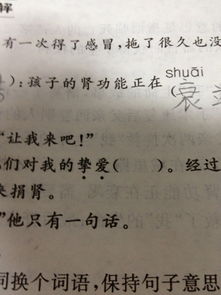 解
有一次得了感冒，拖了很久也没
shuāi
）：孩子的肾功能正在（衰
“让我来吧！”
们对我的挚爱（　　）。经过
来捐肾。
”他只有一句话。
词换个词语，保持句子意思